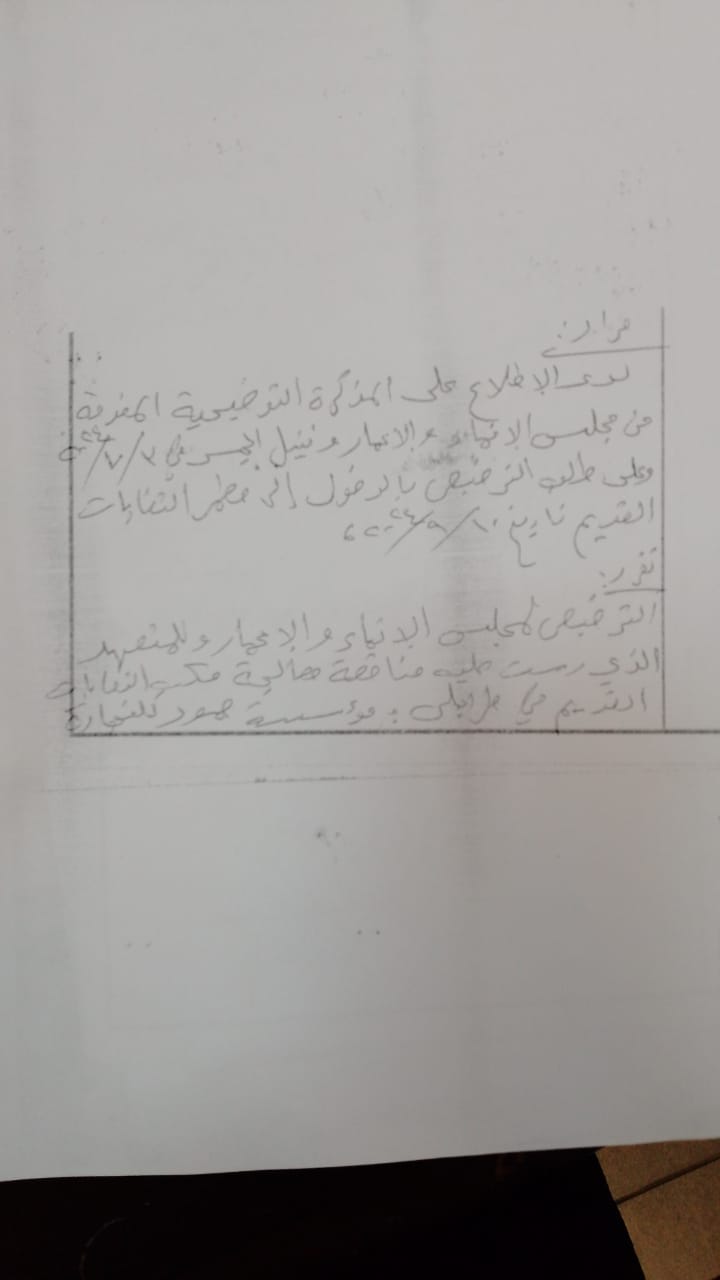 قرار:
لدى الإطلاع على المذكرة التوضيحية المقدمة
من مجلس الانماء والاعمار ونبيل الجسر في ٣/٧/٢٠٢٤
وعلى طلب الترخيص بالدخول إلى مطمر النفايات
القديم تاريخ ١٠/٩/٢٠٢٤،
تقرر:
الترخيص لمجلس الانماء والاعمار وللمتعهد
الذي رست عليه مناقصة معالجة مكب النفايات
القديم في طرابلس: مؤسسة حمود للتجارة